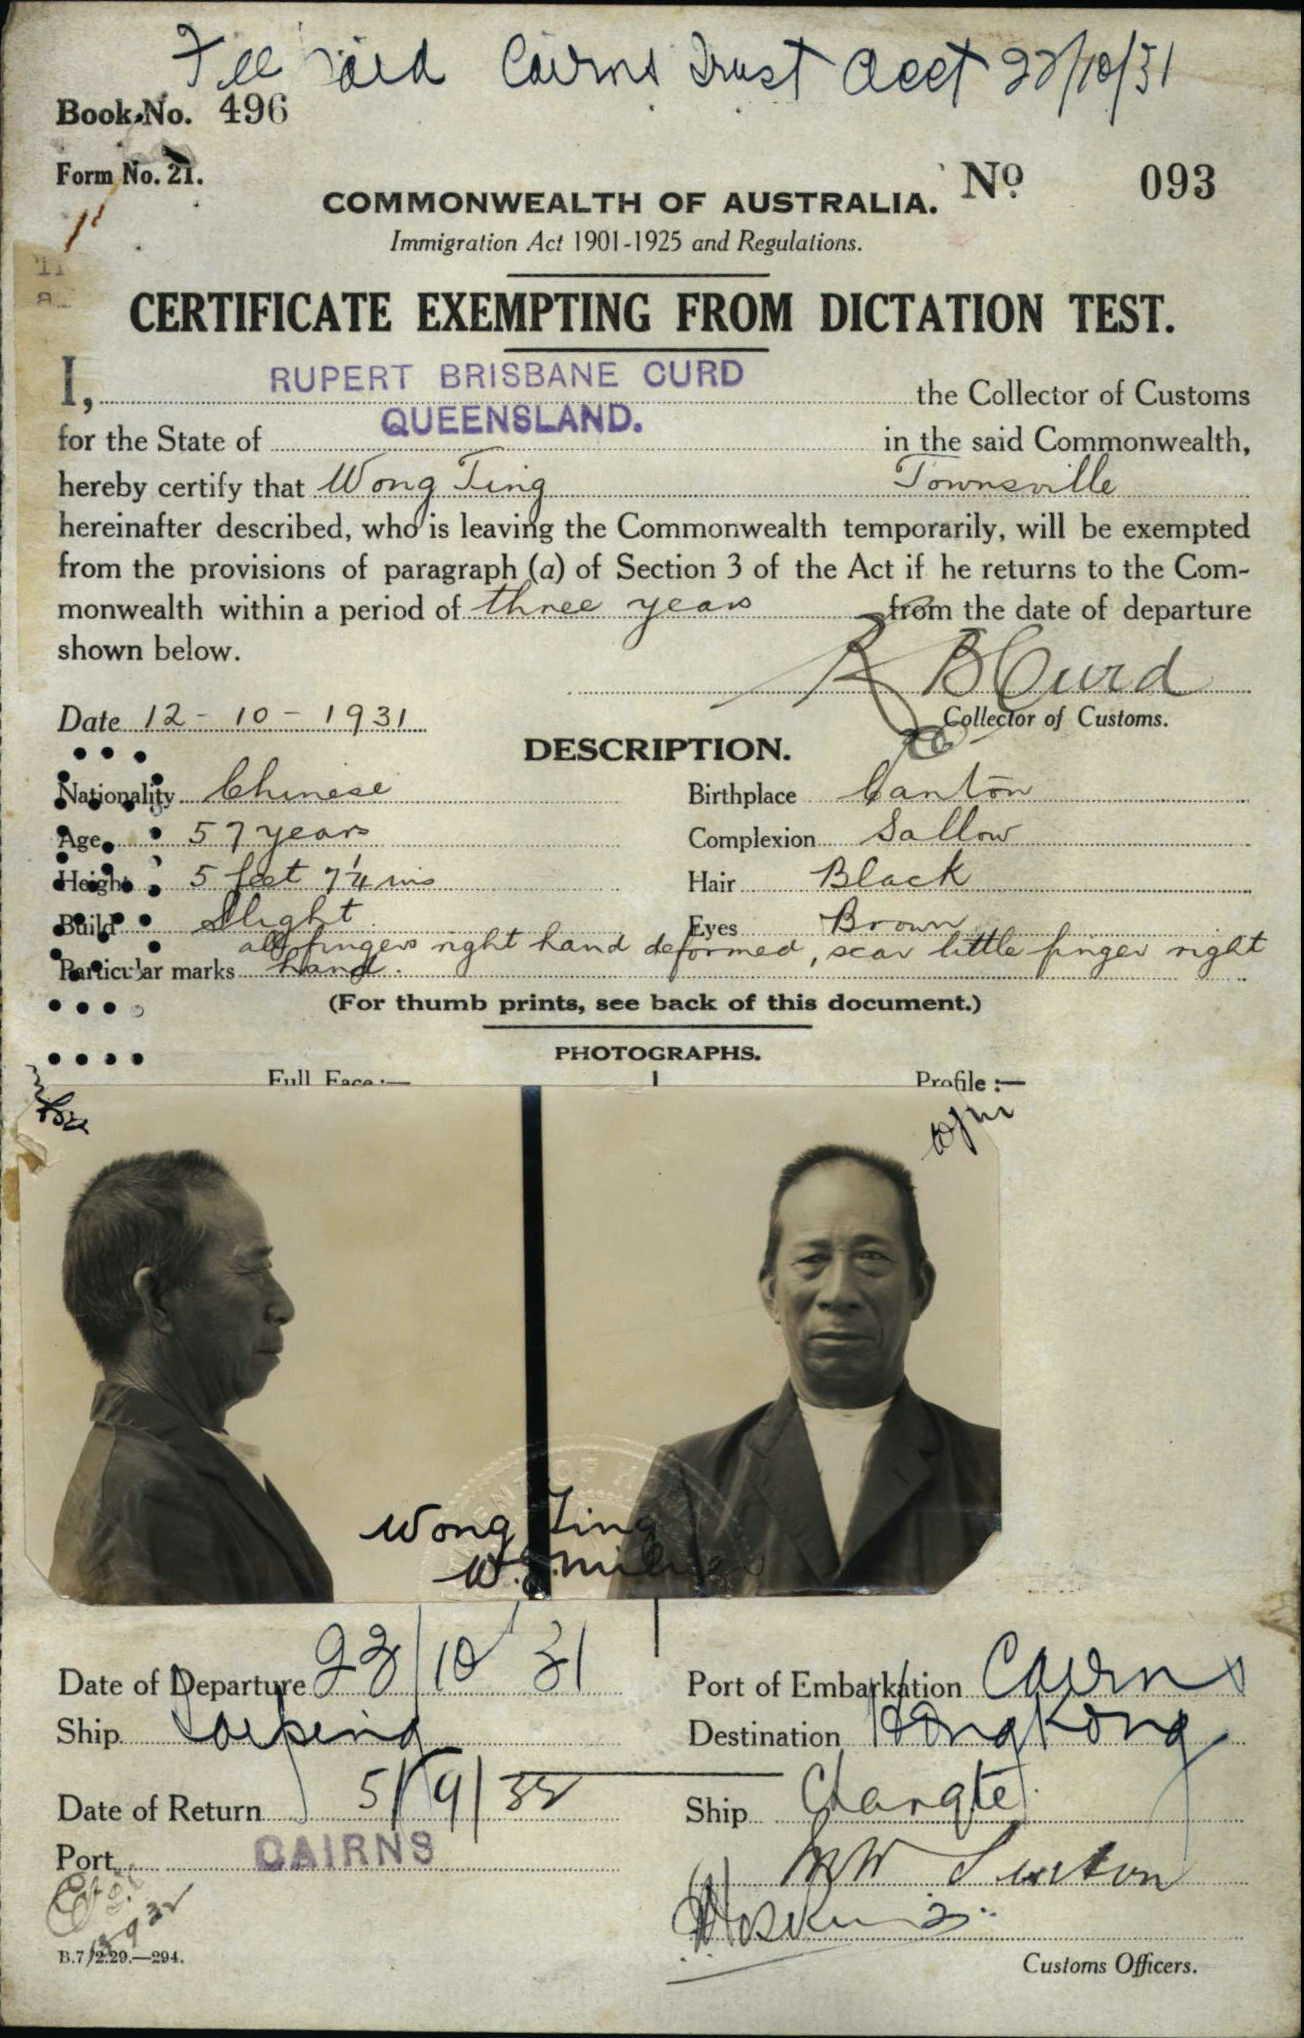 Fee Paid Cairns Trust Acct 22/10/31
Book No. 496
Form No. 21.
No 093
COMMONWEALTH OF AUSTRALIA.
Immigration Act 1901-1925 and Regulations.
CERTIFICATE EXEMPTING FROM DICTATION TEST.
I, RUPERT BRISBANE CURD the Collector of Customs
for the State of QUEENSLAND. in the said Commonwealth,
hereby certify that Wong Ting Townsville
hereinafter described, who is leaving the Commonwealth temporarily, will be exempted
from the provisions of paragraph (a) of Section 3 of the Act if he returns to the Com-
monwealth within a period of three years from the date of departure
shown below.
R B Curd
Date 12-10-1931 Collector of Customs.
DESCRIPTION.
Nationality Chinese Birthplace Canton
Age 57 years Complexion Sallow
Height 5 feet 7¼ ins Hair Black
Build Slight Eyes Brown
all fingers right hand deformed, scar little finger right
Particular marks hand.
(For thumb prints, see back of this document.)
PHOTOGRAPHS.
Full Face:— Profile:—
Wong Ting
Date of Departure 23/10 31 Port of Embarkation Cairns
Ship Taiping Destination Hong Kong
Date of Return 5/9/32 Ship Changte
Port CAIRNS
B.7/2.29.—294. Customs Officers.